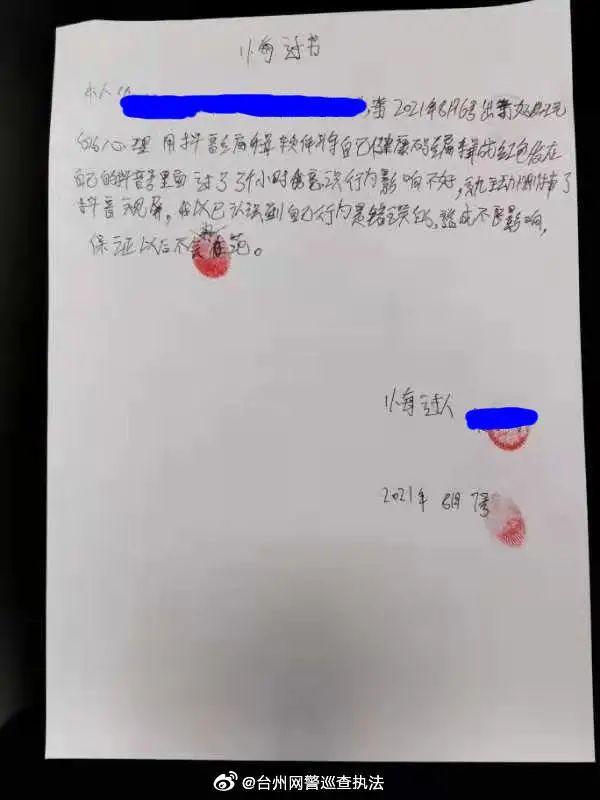 悔过书
本人
,董 2021年8月6号出于
的心理 用抖音编辑软件将自己健康码编辑成红色发在
自己的抖音号里面 过了3个小时 行为影响不好,就主动删掉了
抖音视屏,本人已认识到自己行为是错误的,造成不良影响,
保证以后不会再犯。
悔过人
2021年 8月 7号
@台州网警巡查执法